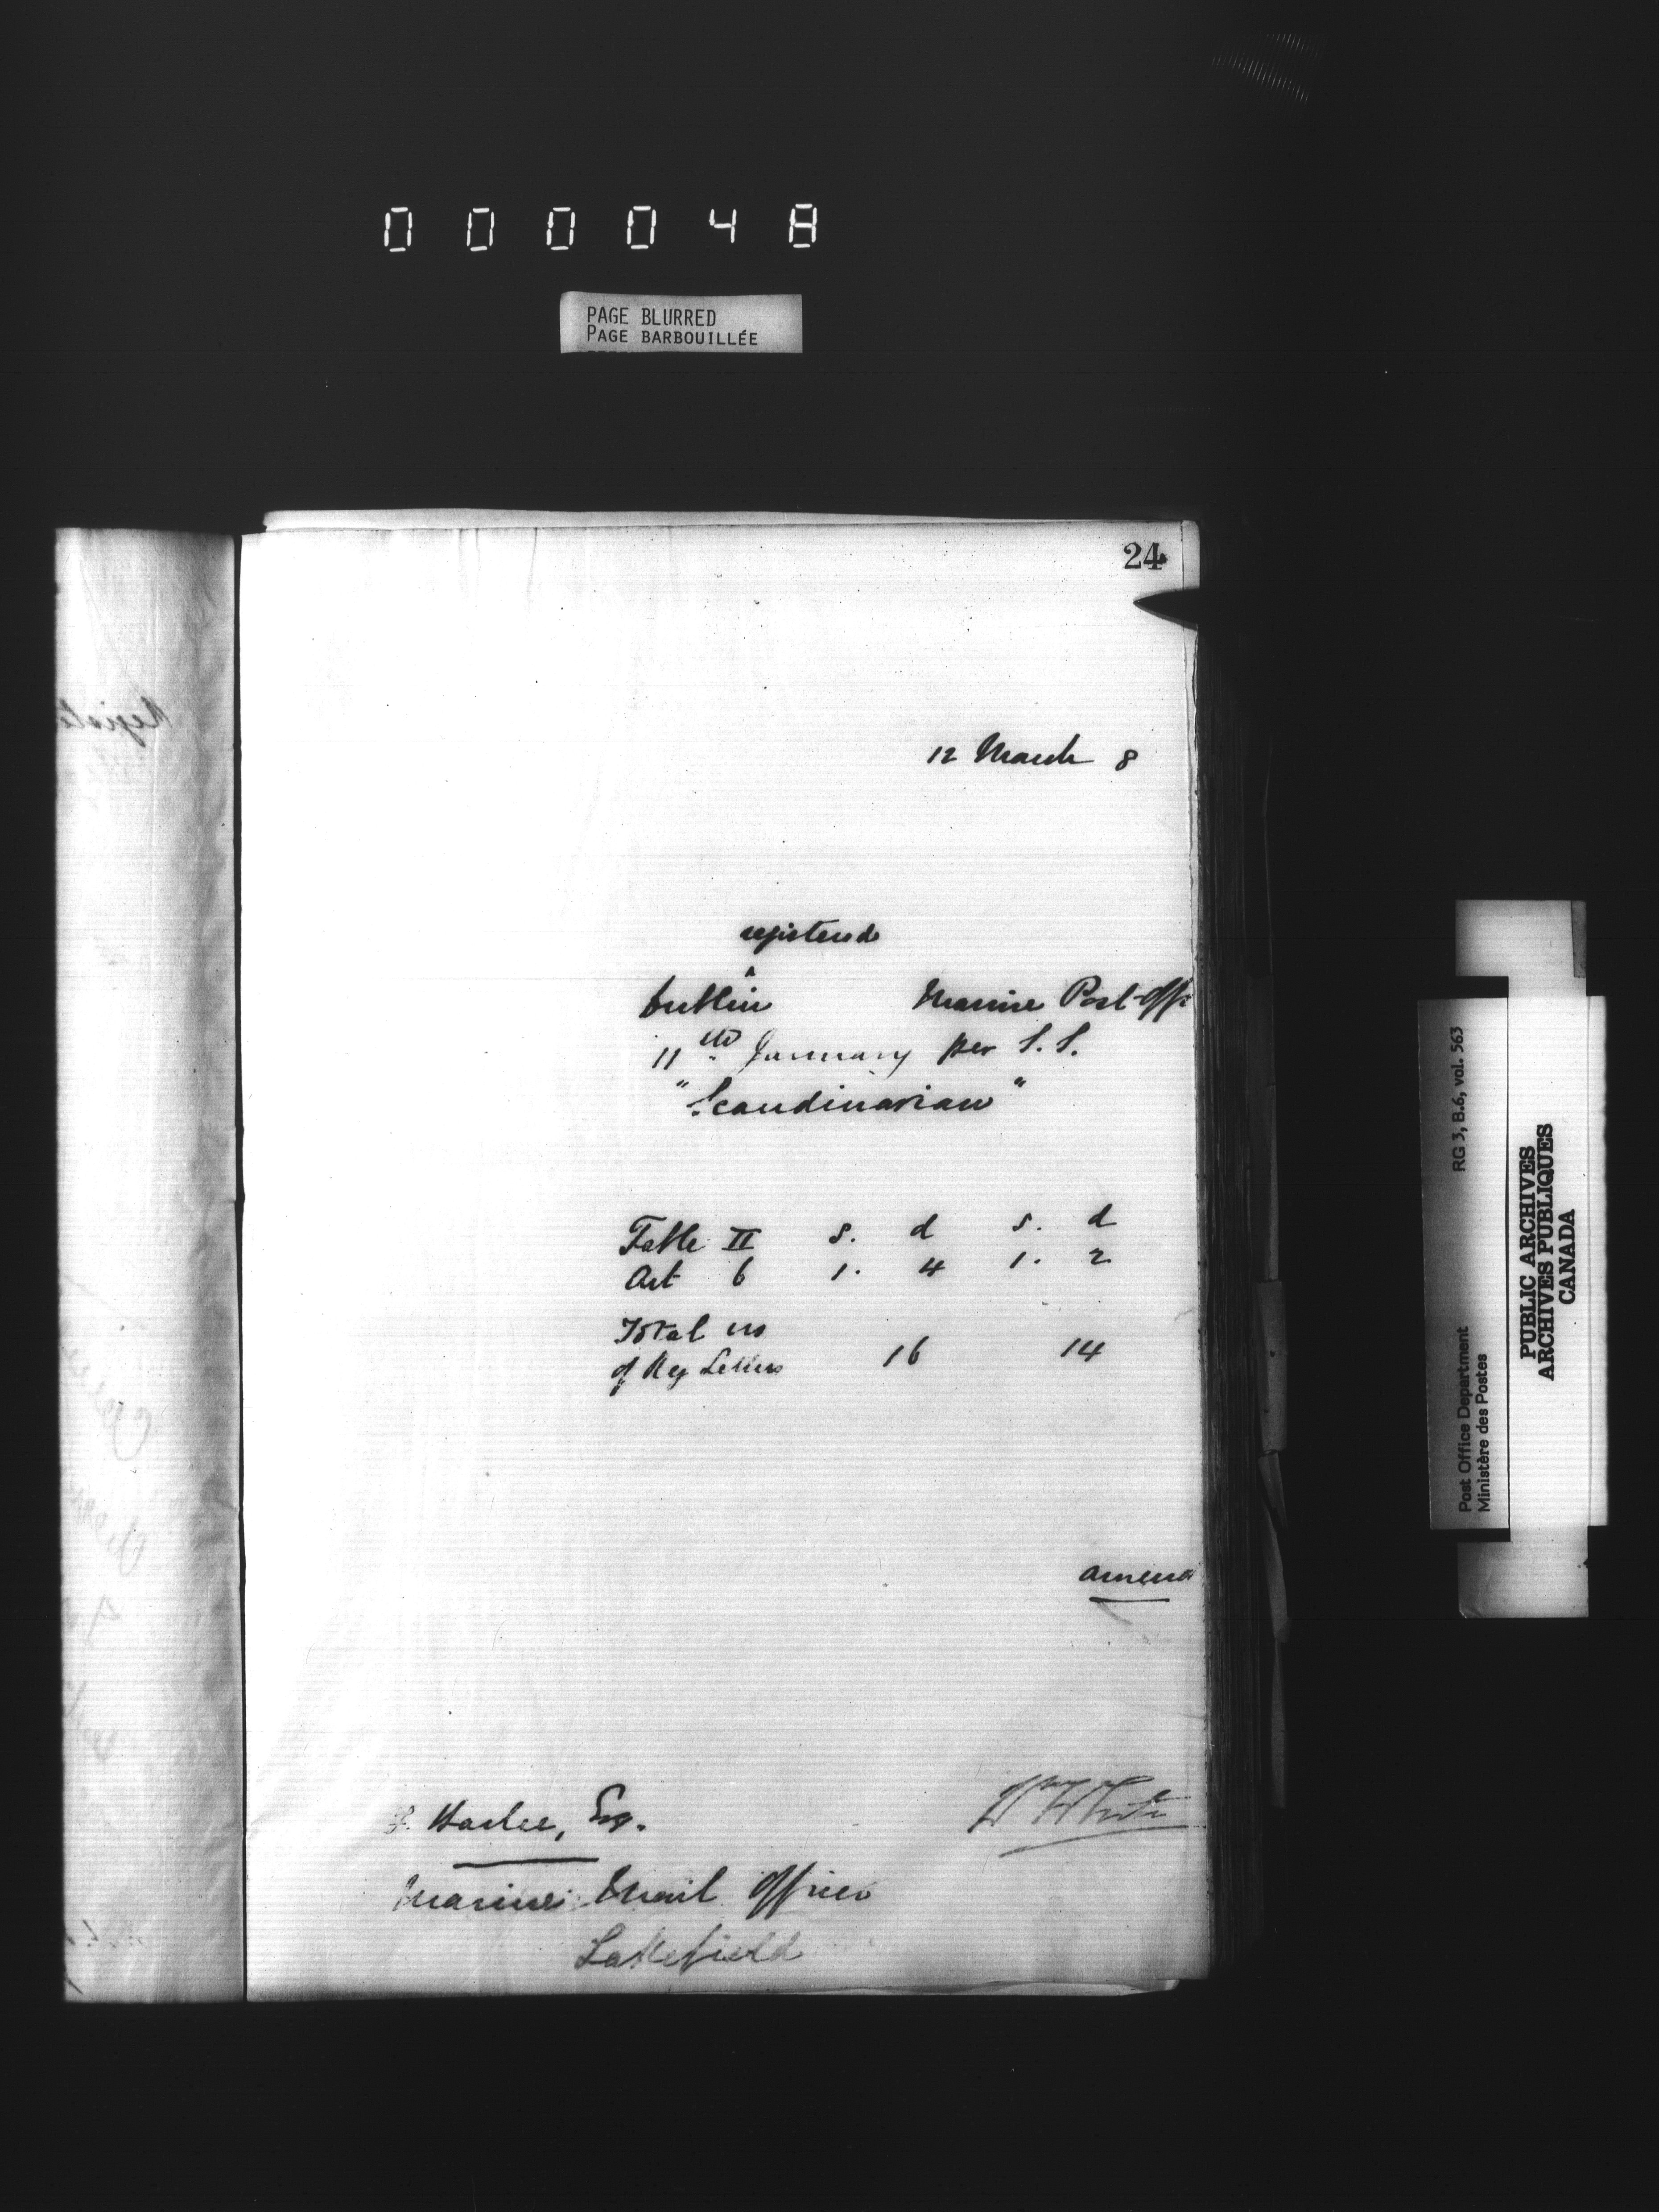 000048
PAGE BLURRED
PAGE BARBOUILLÉE
24
12 March 8
registered
^
Dublin Marine Post-Offi
11th January per S.S.
"Scandinavian"
Table II s. d s. d
Art 6 1. 4 1. 2
Total no
of Reg Letters 16 14
amend
W White
Esq.
Marine Mail Officer
Lakefield
Post Office Department RG 3, B.6, vol. 563
Ministère des Postes
PUBLIC ARCHIVES
ARCHIVES PUBLIQUES
CANADA